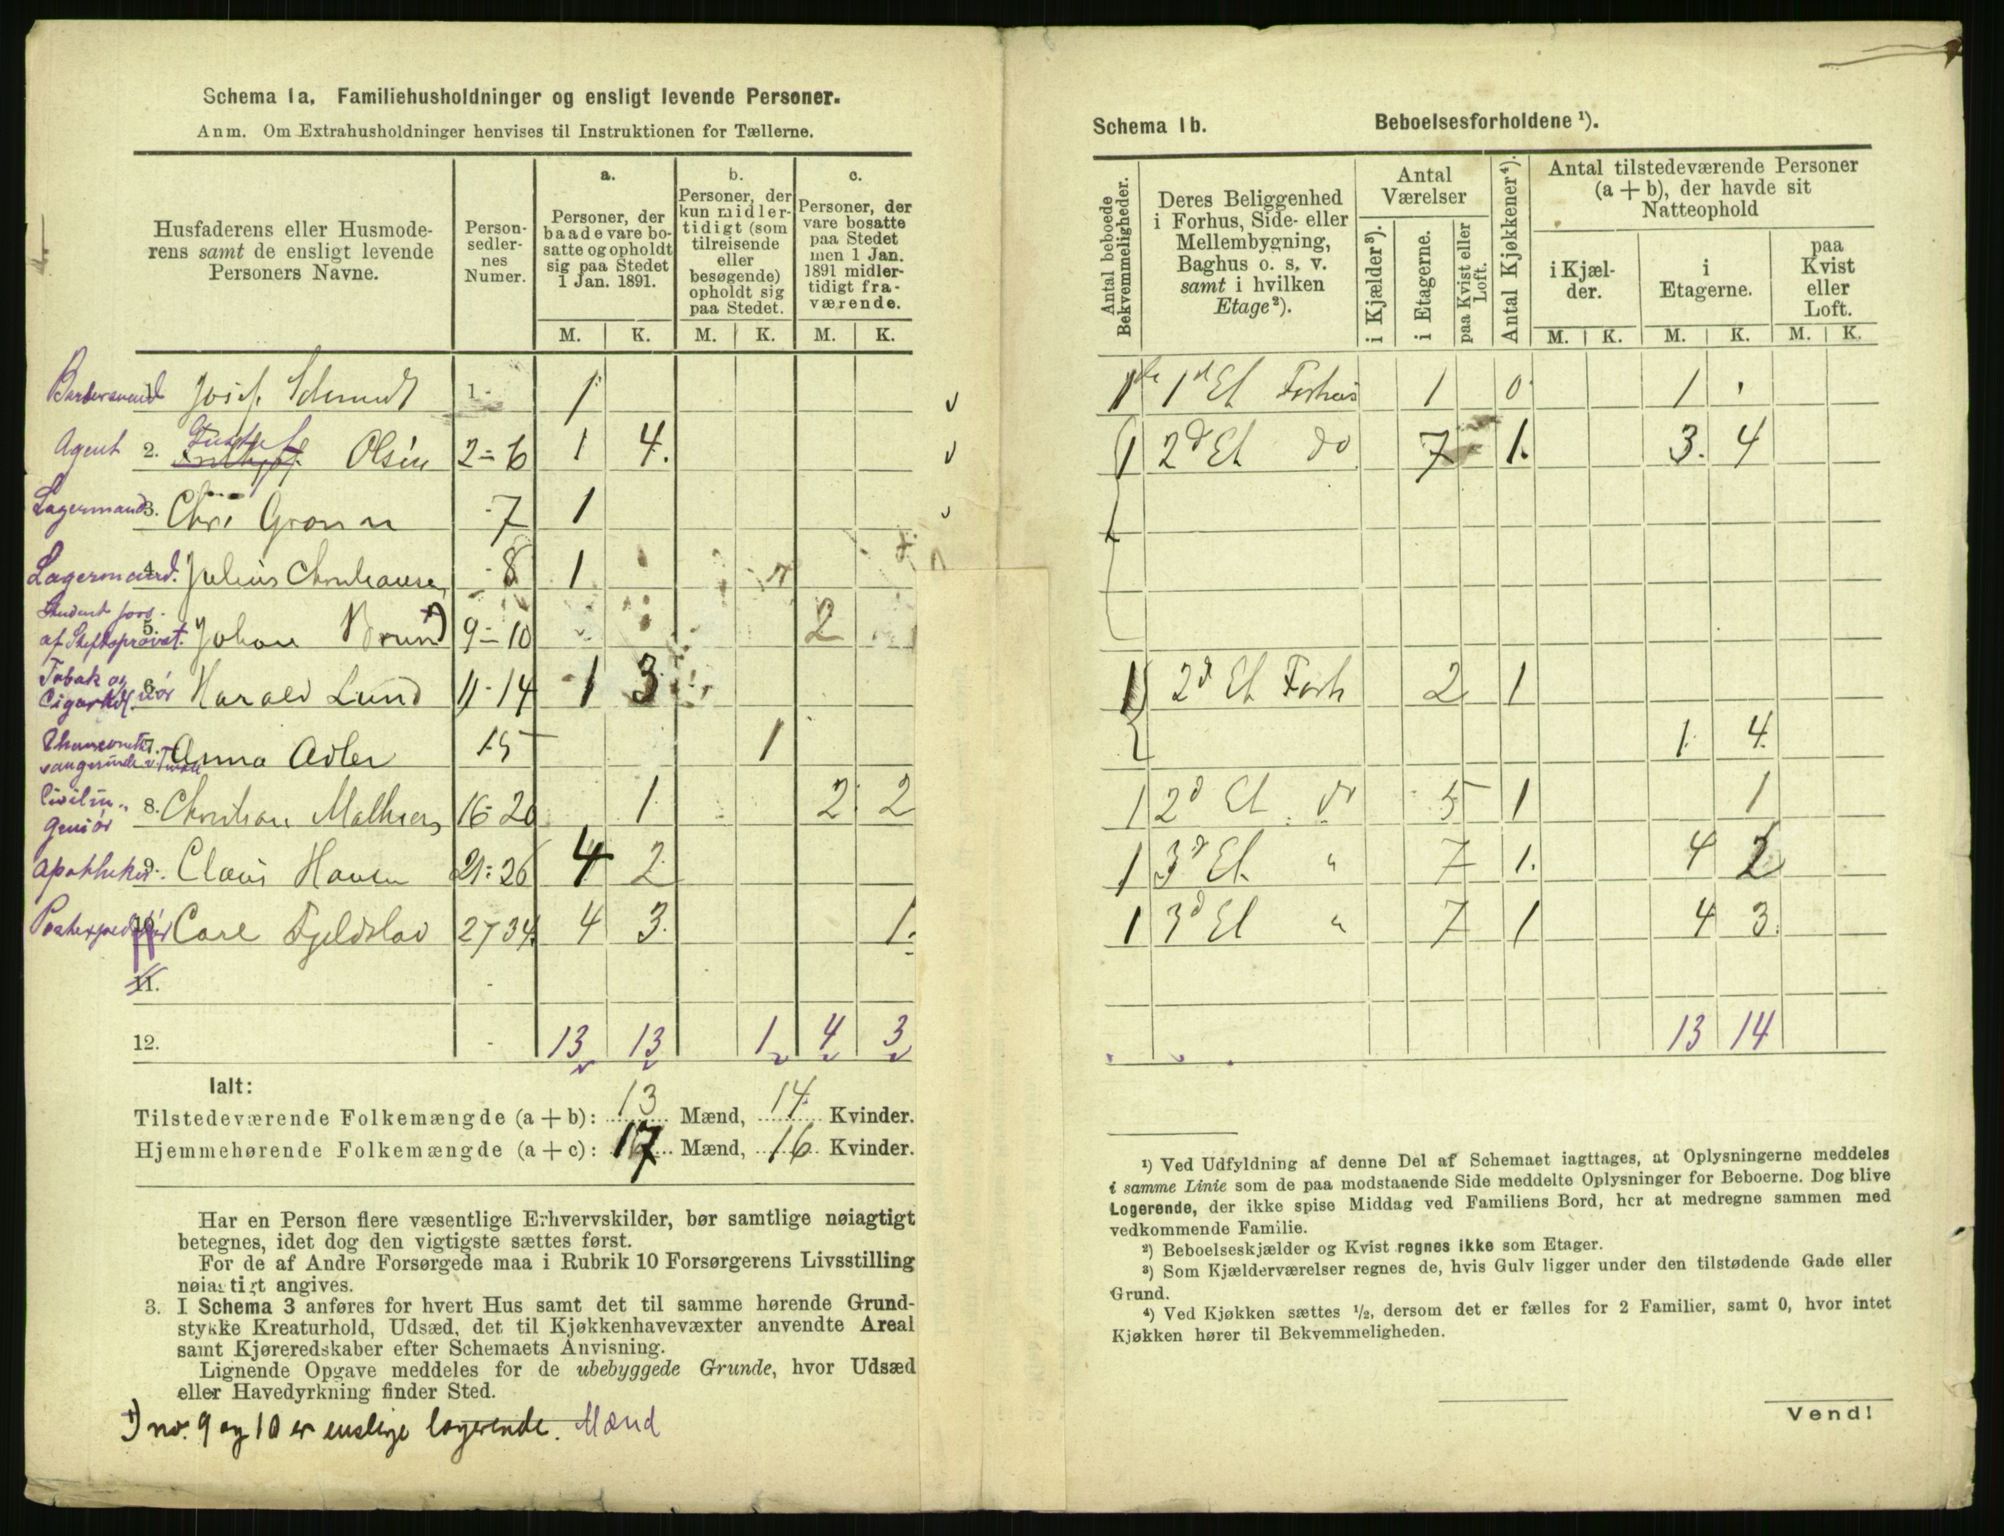 Schema 1a. Familiehusholdninger og ensligt levende Personer.
Anm. Om Extrahusholdninger henvises til Instruktionen for Tællerne.
Husfaderens eller Husmode-
rens samt de ensligt levende
Personers Navne.
Person-
sedler-
nes
Numer.
a.
Personer, der
baade vare bo-
satte og opholdt
sig paa Stedet
1 Jan. 1891.
b.
Personer, der
kun midler-
tidigt (som
tilreisende
eller
besøgende)
opholdt sig
paa Stedet.
c.
Personer, der
vare bosatte
paa Stedet
men 1 Jan.
1891 midler-
tidigt fra-
værende.
M. K. M. K. M. K.
Barbersvend 1. Josef Schmidt 1 1
Agent 2. Olsen 2-6 1 4.
Lagermand 3. Chr. Grønn 7 1
Lagermand. 4. Julius 8 1
Student
5. Johan Brun 9-10 2
Tobak og
6. Harald Lund 11-14 1 3
7. Anna Adler 15 1
Civilin-
geniør 8. Christian 16-20 1 2 2
Apotheker 9. Claus Hansen 21-26 4 2
Postexpeditør 10. Carl Fjeldstad 27 34 4 3. 1.
11.
12. 13 13 1 4 3
Ialt:
Tilstedeværende Folkemængde (a + b): 13 Mænd, 14 Kvinder.
Hjemmehørende Folkemængde (a + c): 17 Mænd, 16 Kvinder.
Har en Person flere væsentlige Erhvervskilder, bør samtlige nøiagtigt
betegnes, idet dog den vigtigste sættes først.
For de af Andre Forsørgede maa i Rubrik 10 Forsørgerens Livsstilling
nøiagtigt angives.
3. I Schema 3 anføres for hvert Hus samt det til samme hørende Grund-
stykke Kreaturhold, Udsæd, det til Kjøkkenhavevæxter anvendte Areal
samt Kjøreredskaber efter Schemaets Anvisning.
Lignende Opgave meddeles for de ubebyggede Grunde, hvor Udsæd
eller Havedyrkning finder Sted.
no. 9 og 10 er enslige logerende. Mænd
Schema 1b. Beboelsesforholdene ¹).
Antal beboede
Bekvemmeligheder.
Deres Beliggenhed
i Forhus, Side- eller
Mellembygning,
Baghus o. s. v.
samt i hvilken
Etage²).
Antal
Værelser
i Kjælder³).
i Etagerne.
paa Kvist eller
Loft.
Antal Kjøkkener⁴).
Antal tilstedeværende Personer
(a + b), der havde sit
Natteophold
i Kjæl-
der.
i
Etagerne.
paa
Kvist
eller
Loft.
M. K. M. K. M. K.
1 1 Et Forhus 1 0 1
1 2d Et do 7 1. 3. 4
1 2d Et Forh 2 1
1 4
1 2d Et do 5 1 1
1 3d Et. " 7 1. 4 2
1 3d Et " 7 1 4 3.
13 14
¹) Ved Udfyldning af denne Del af Schemaet iagttages, at Oplysningerne meddeles
i samme Linie som de paa modstaaende Side meddelte Oplysninger for Beboerne. Dog blive
Logerende, der ikke spise Middag ved Familiens Bord, her at medregne sammen med
vedkommende Familie.
²) Beboelseskjælder og Kvist regnes ikke som Etager.
³) Som Kjælderværelser regnes de, hvis Gulv ligger under den tilstødende Gade eller
Grund.
⁴) Ved Kjøkken sættes ½, dersom det er fælles for 2 Familier, samt 0, hvor intet
Kjøkken hører til Bekvemmeligheden.
Vend!